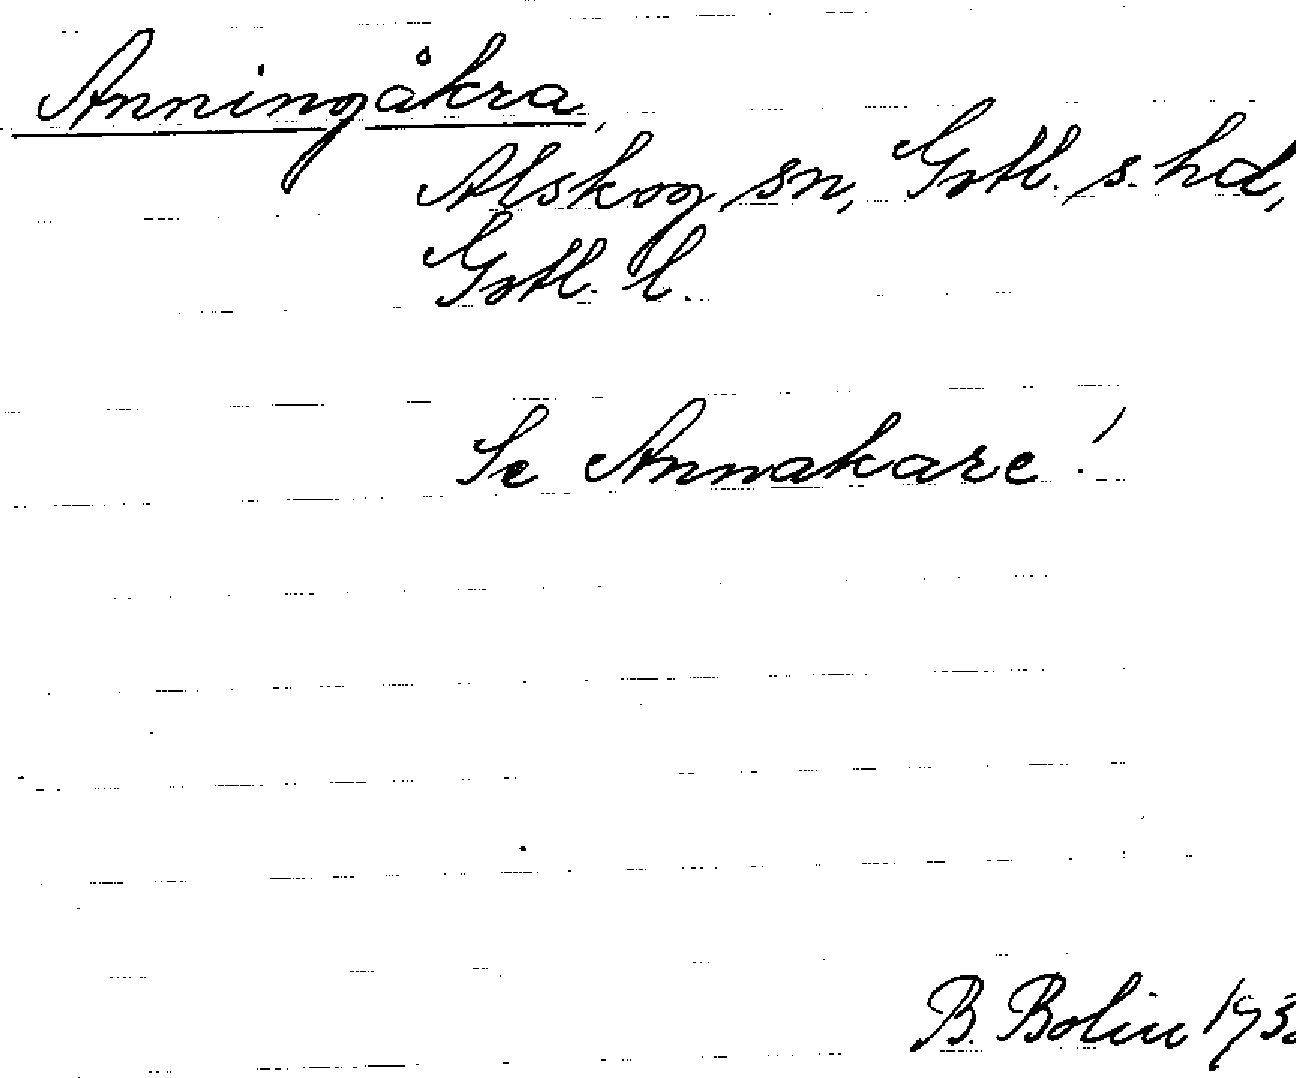 Anningåkra,
Alskog sn, Gotl. s. hd,
Gotl. l.
Se Annakare!
B. Bolin